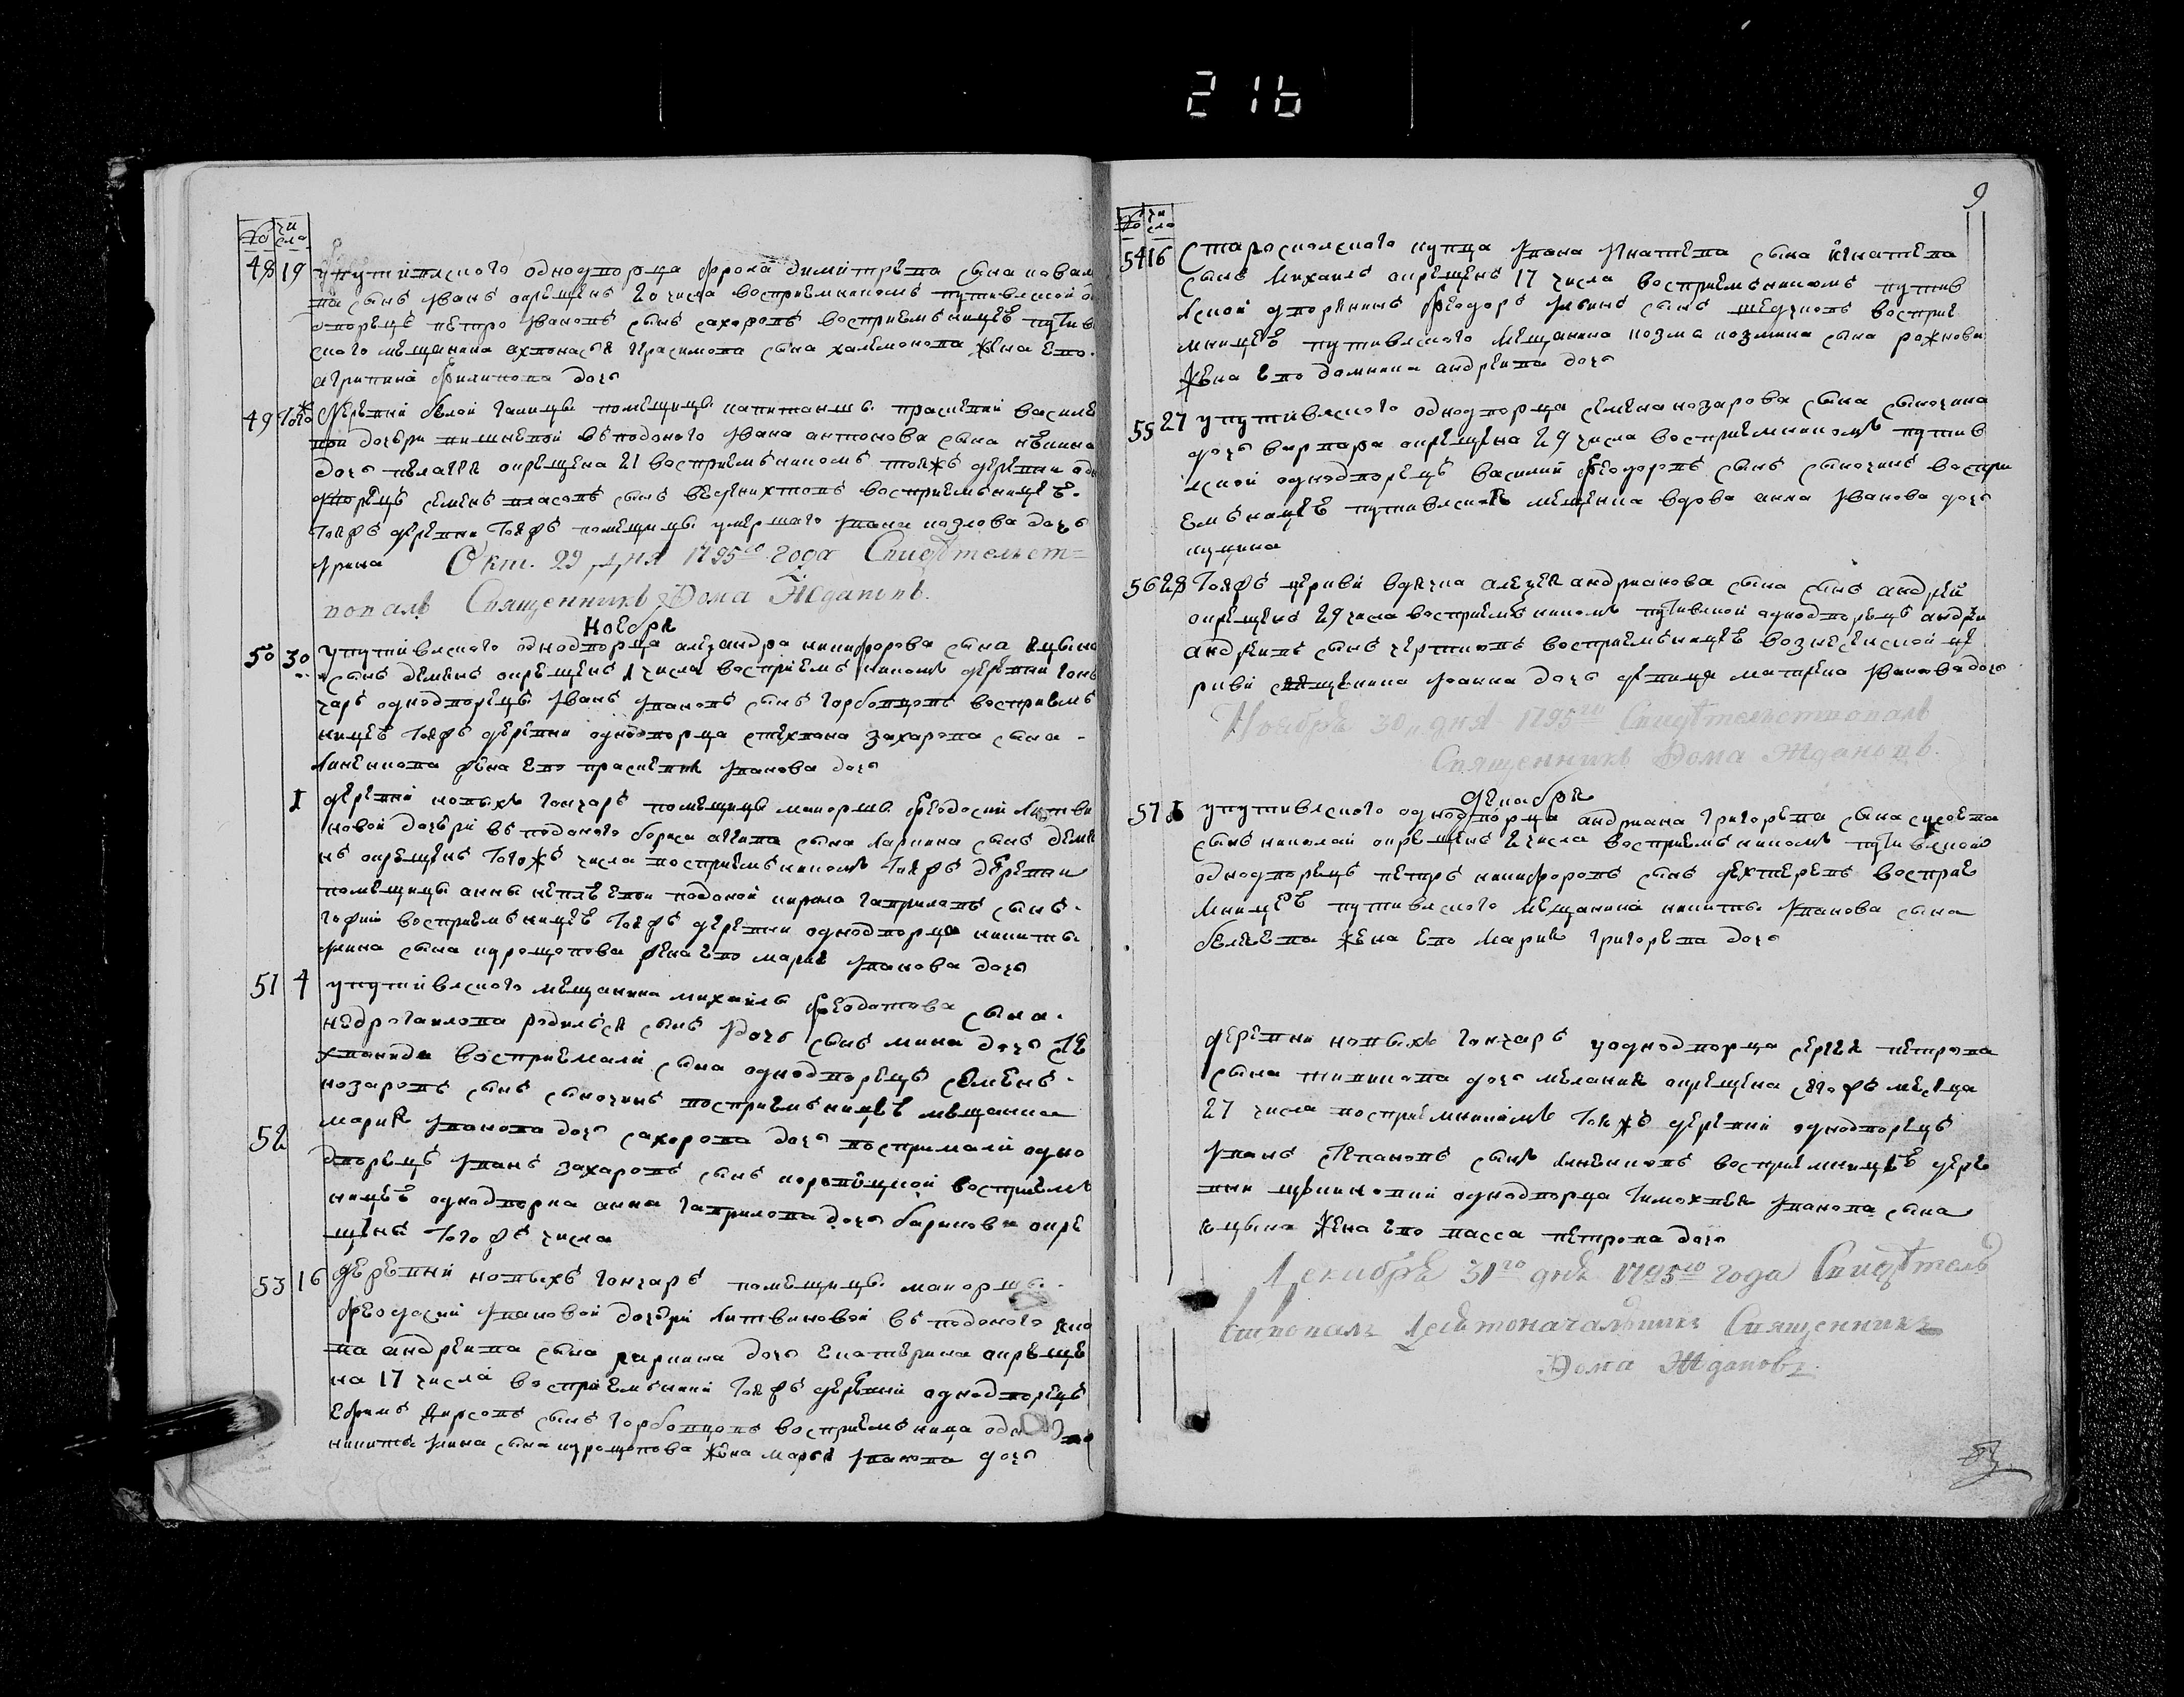 216
№ чи
сло
48 19 у путивлского однодворца фрола димитриева сына ковал
ва сынъ иванъ окрещенъ 20 числа восприемникомъ путивлской од
дворецъ петро ивановъ сынъ сахоровъ восприемъницею путив
ского мещанина ахвонасья герасимова сына халимонова жена ево
агрипина филипова дочь
49 тогож деревни белой галицы помещицы капитанши праскевии василе
вой дочери вишневой въподоного ивана антонова сына
дочь пелагея окрещена 21 восприемъникомъ тоежъ деревни одн
дворецъ семенъ власовъ сынъ восприемъницею
тоежъ деревни тоежъ помещицы умершаго ивана козлова дочь
ирина Окт. 29 дня 1795го года Свидетельст=
вовалъ Священникъ Фома Ждановъ.
Ноебря
50 30 у путивлского однодворца алезандра никифорова сына яцына
сынъ деменъ окрещенъ 1 числа восприемъникомъ деревни гон
чаръ однодворецъ иванъ ивановъ сынъ горбовцовъ восприемъ
ницею тоежъ деревни однодворца стехвана захарова сына
линникова жена ево праскевия иванова дочь
1 деревни новыхъ гончаръ помещицы маиорши феодосии литви
новой дочери въподоного бориса сына ларкина сынъ деме
нъ окрещенъ тогожъ числа восприемъникомъ тоежъ деревни
помещицы анны неплюевои подоной кирило гавриловъ сынъ
восприемъницею тоежъ деревни однодворца никиты
сына курощопова жена ево мария иванова дочь
51 4 у путивлского мещанина михаила феодотова сына
недрогаилова родилься сынъ идочь сынъ мина дочь сте
ханида восприемали сына однодворецъ семенъ
нозаровъ сынъ сыночинъ восприемъницею мещанка
52 мария иванова дочь сахорова дочь восприемали одно
дворецъ иванъ захаровъ сынъ восприемъ
ницею однодворка анна гаврилова дочь баринова окре
щены тогожъ числа
53 16 деревни новыхъ гончаръ помещицы маиорши
феодосии ивановой дочери литвиновой въподоного яко
ва андреива сына ларкина дочь екатерина окреще
на 17 числа восприемъники тоежъ деревни однодворецъ
ефимъ фирсовъ сынъ горбовцовъ восприемъница
никиты сына курощопова жена марья иванова дочь
9
№ чи
сло
54 16 Староосколского купца ивана игнатева сына игнатева
сынъ михаилъ окрещенъ 17 числа восприемъникомъ путив
лской дворенинъ феодоръ ильинъ сынъ восприе
мницею путивлского мещанина козмы козмина сына рожнова
жена ево домника андреива дочь
55 27 у путивлского однодворца семена нозарова сына сыночина
дочь варвара окрещена 29 числа восприемникомъ путив
лской однодворецъ василий феодоровъ сынъ сыночинъ воспри
емъницею путивлская мещенка вдова анна иванова дочь

56 28 тоежъ церкви андрианова сына сынъ андрей
окрещенъ 29 числа восприемъникомъ путивлской однодворецъ андре
андреивъ сынъ чертковъ восприемъницею вознесенской це
ркви иоанна дочь девица матрена иванова дочь
Ноября 30„ дня 1795го Свидетельствовалъ
Священникъ Фома Ждановъ.
декабря
57 1 у путивлского однодворца андриана григорева сына
сынъ николай окрещенъ 2 числа восприемъникомъ путивлской
однодворецъ петръ никифоровъ сынъ дехтеревъ восприе
мницею путивлского мещанина никиты иванова сына
беляева жена ево мария григорева дочь
деревни новыхъ гончаръ у однодворца сергея петрова
сына дочь мелания окрещена сегожъ месяца
27 числа восприемникомъ тояжъ деревни однодворецъ
иванъ степановъ сынъ линниковъ восприемницею дере
вни однодворца тимохвея иванова сына
яцына жена ево васса петрова дочь
Декабря 31го дня 1795го года Свидетель
ствовалъ Десятоначальникъ Священникъ
Фома Ждановъ